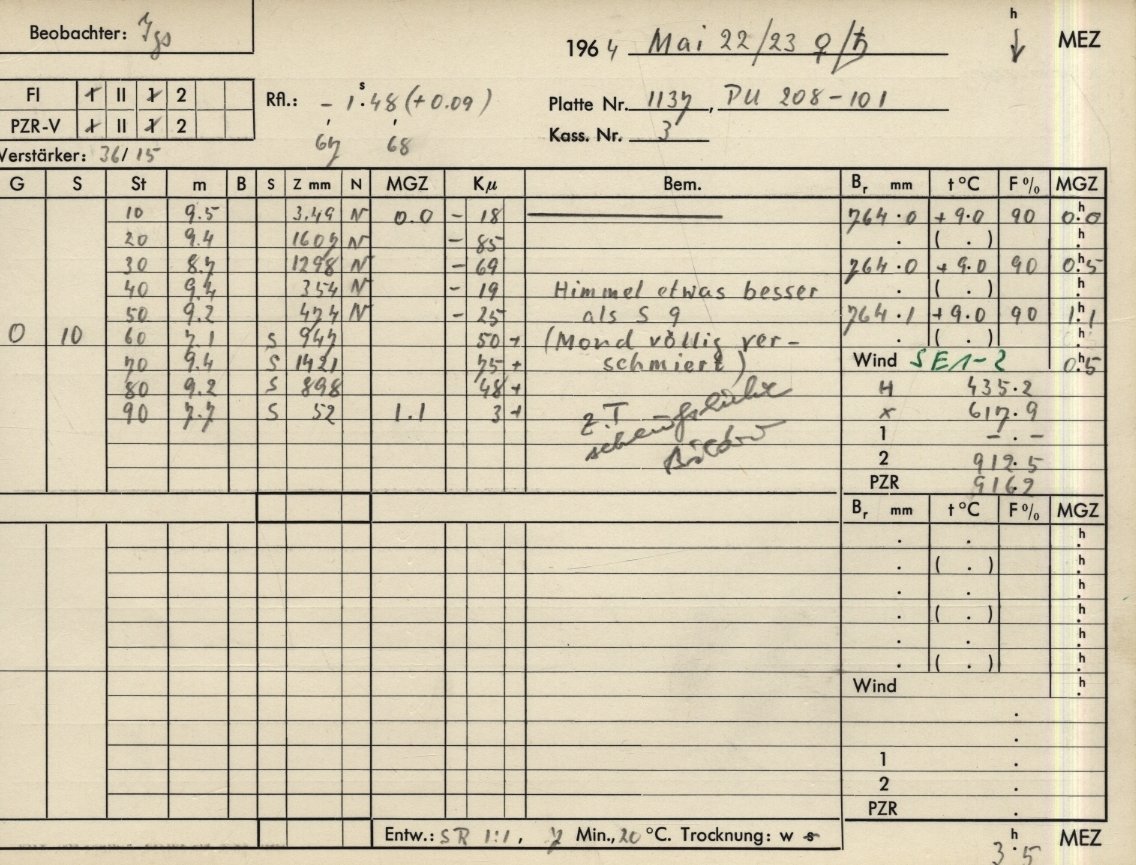 Beobachter: Jgs
1964 Mai 22/23 ♀/♄ h MEZ
FI 1 II 1 2
PZR-V 1 II 1 2
Rfl.: - 1.ˢ48 (+0.09)
67 68
Platte Nr. 1137, PU 208-101
Kass. Nr. 3
Verstärker: 36/15
G S St m B S Z mm N MGZ Kμ Bem. Bᵣ mm t °C F % MGZ
10 9.5 3.49 N 0.0 - 18 764.0 +9.0 90 0.ʰ0
20 9.4 1607 N - 85 . ( . ) h
30 8.7 1298 N - 69 764.0 +9.0 90 0.ʰ5
40 9.4 354 N - 19 Himmel etwas besser . ( . ) h
50 9.2 474 N - 25 als S 9 764.1 +9.0 90 1.ʰ1
0 10 60 7.1 S 947 50 + (Mond völlig ver- . ( . ) h
70 9.4 S 1421 75 + schmiert) Wind SE 1-2 0.ʰ5
80 9.2 S 898 48 + H 435.2
90 7.7 S 52 1.1 3 + z.T. x 617.9
1 -.-
2 912.5
PZR 9162
Bᵣ mm t °C F % MGZ
. . h
. ( . ) h
. . h
. ( . ) h
. . h
. ( . ) h
Wind h
.
.
1 .
2 .
PZR .
Entw.: SR 1:1, 7 Min., 20 °C. Trocknung: w s 3.ʰ5 MEZ